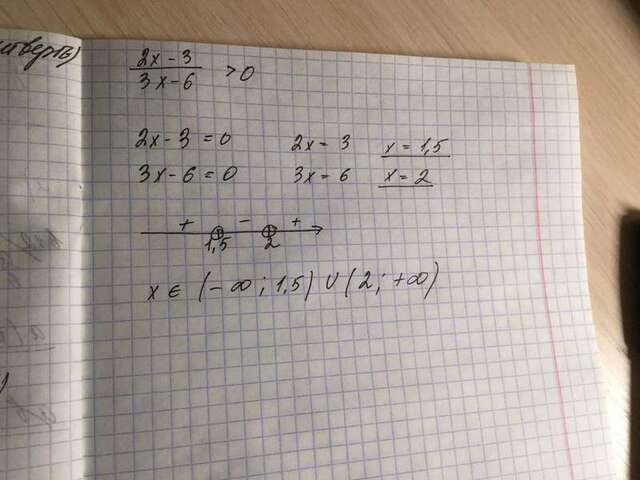 (2x - 3)/(3x - 6) > 0
2x - 3 = 0 2x = 3 x = 1,5
3x - 6 = 0 3x = 6 x = 2
+ - +
1,5 2
x ∈ (-∞; 1,5) ∪ (2; +∞)